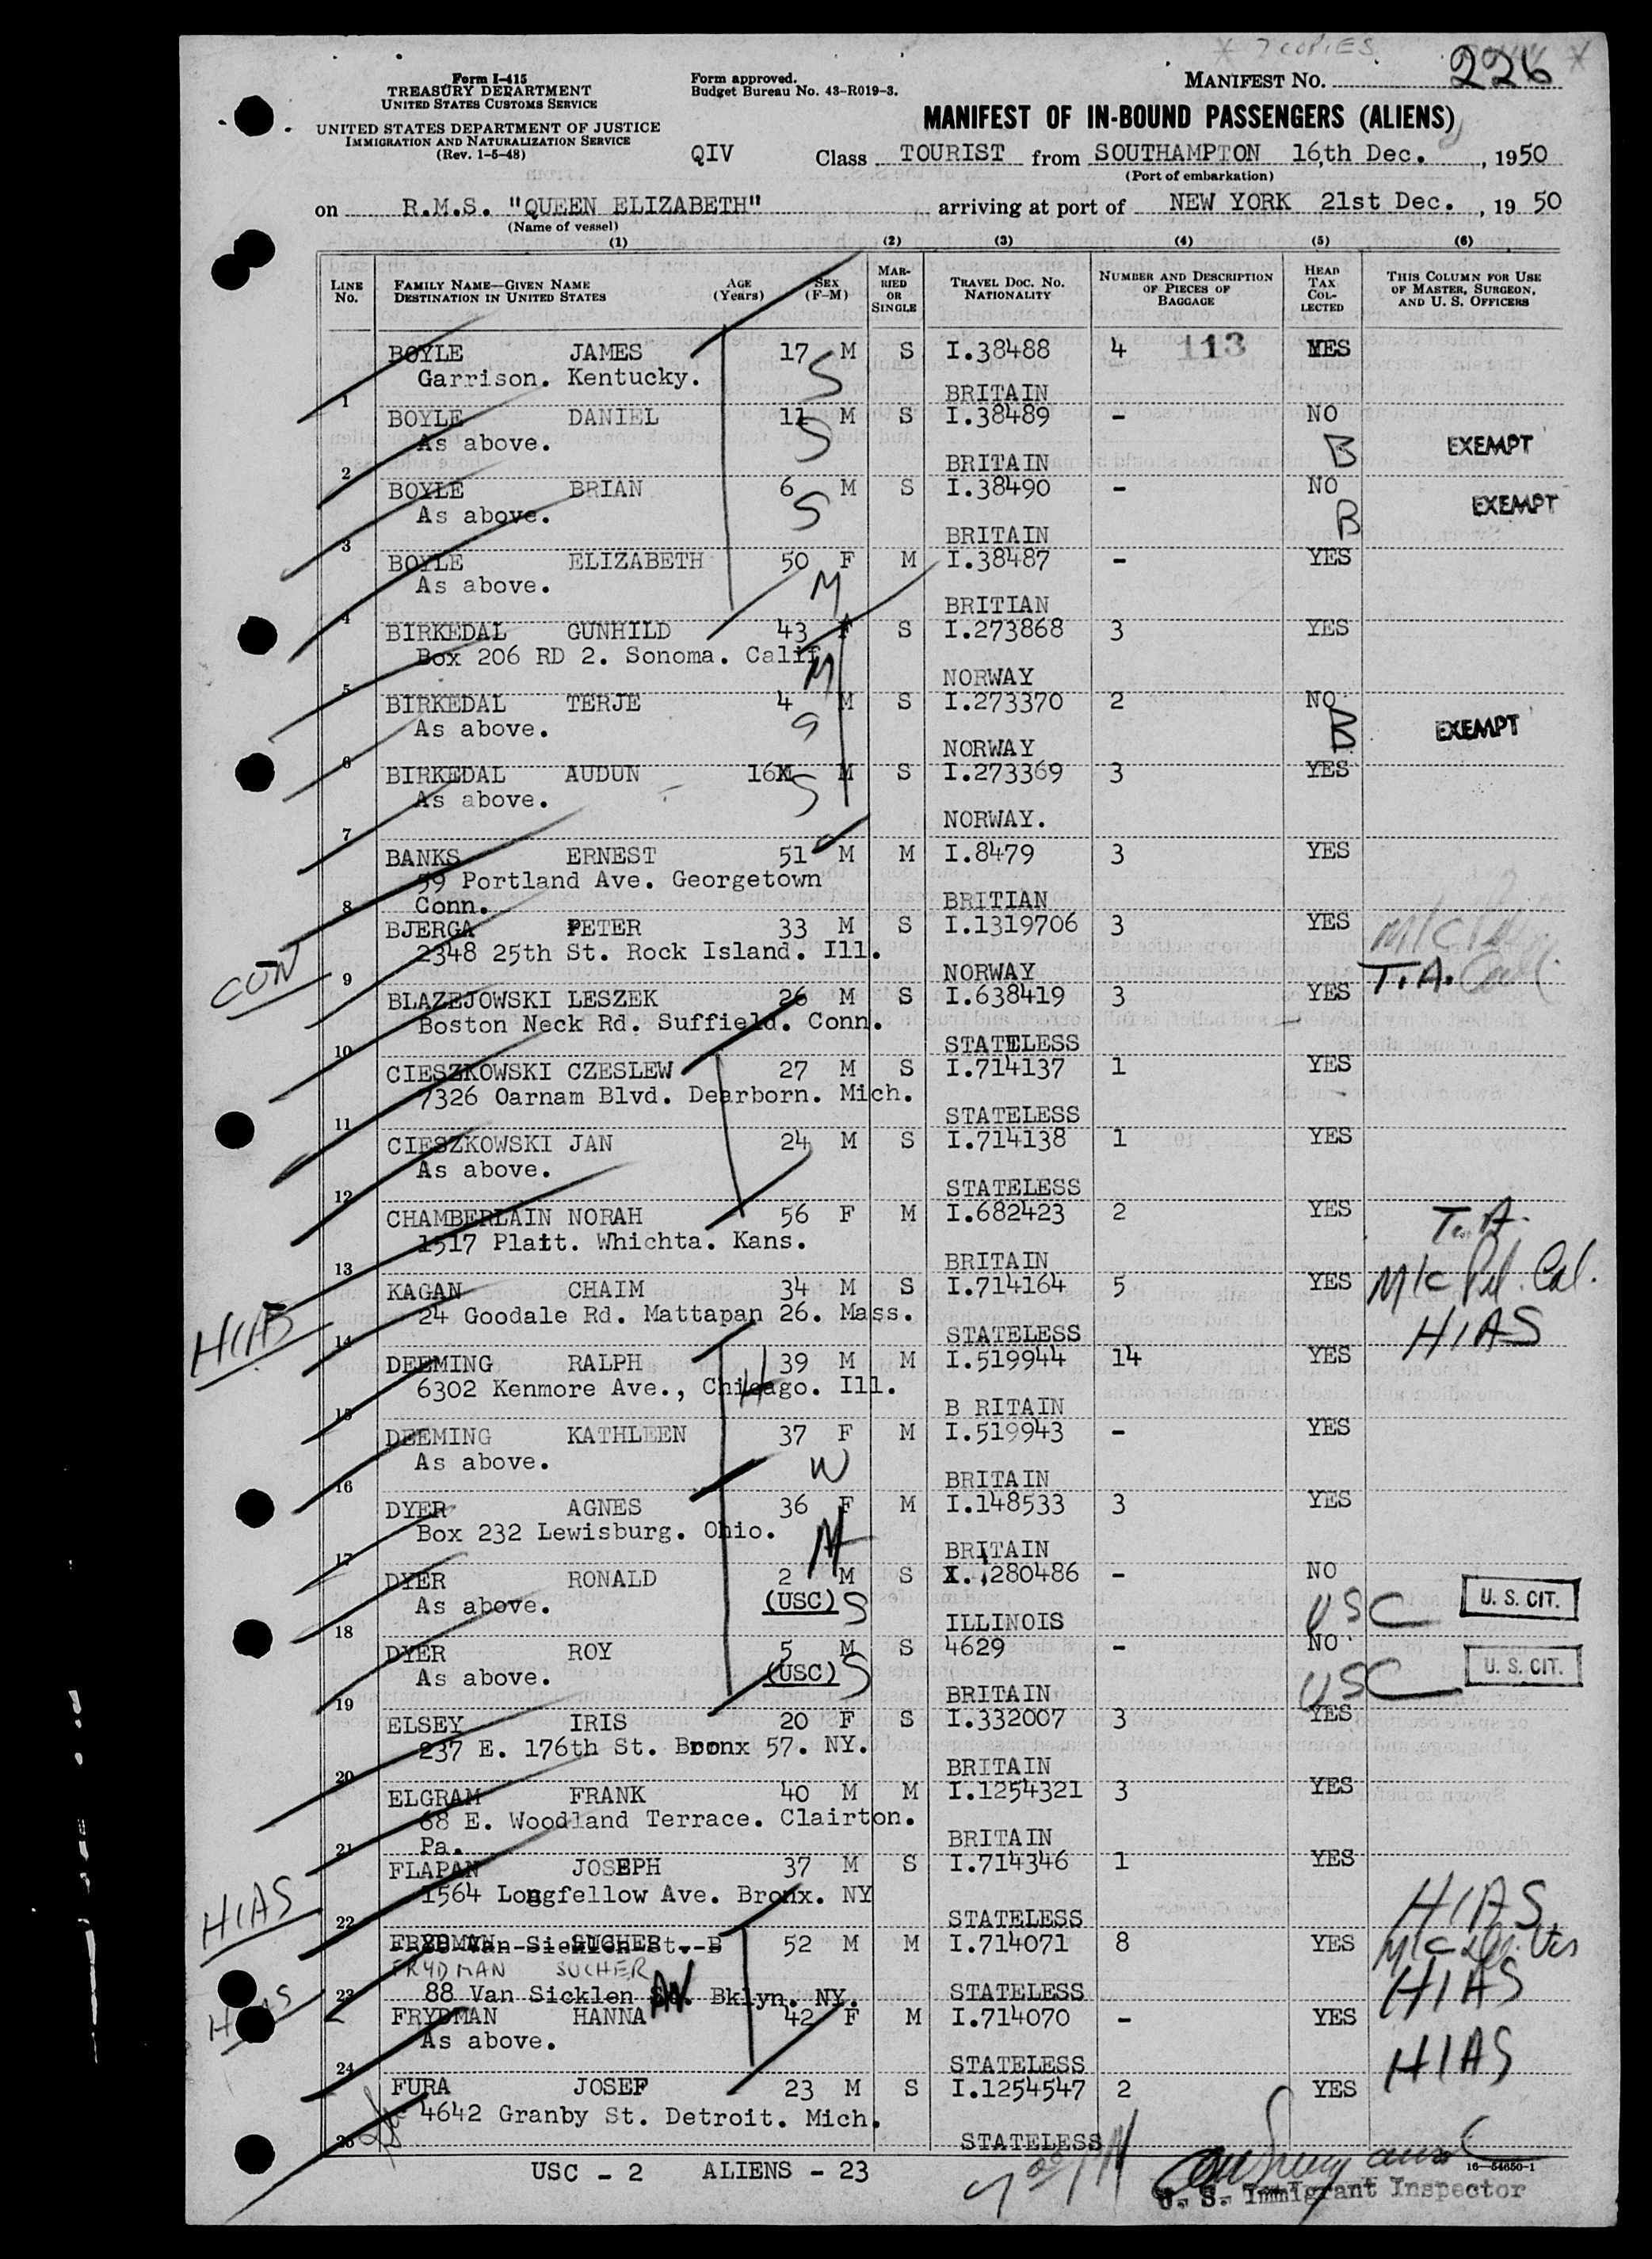 * 7 COPIES *
Form I-415
TREASURY DEPARTMENT
UNITED STATES CUSTOMS SERVICE
UNITED STATES DEPARTMENT OF JUSTICE
IMMIGRATION AND NATURALIZATION SERVICE
(Rev. 1-5-48)
Form approved.
Budget Bureau No. 43-R019-3.
MANIFEST NO. 226
MANIFEST OF IN-BOUND PASSENGERS (ALIENS)
QIV Class TOURIST from SOUTHAMPTON 16th Dec. , 1950
(Port of embarkation)
on R.M.S. "QUEEN ELIZABETH" arriving at port of NEW YORK 21st Dec. , 19 50
(Name of vessel)
(1) (2) (3) (4) (5) (6)
LINE No. FAMILY NAME—GIVEN NAME DESTINATION IN UNITED STATES AGE (Years) SEX (F-M) MARRIED OR SINGLE TRAVEL DOC. NO. NATIONALITY NUMBER AND DESCRIPTION OF PIECES OF BAGGAGE HEAD TAX COLLECTED THIS COLUMN FOR USE OF MASTER, SURGEON, AND U. S. OFFICERS
BOYLE JAMES 17 M S I.38488 4 113 YES
Garrison. Kentucky. S
1 BRITAIN
BOYLE DANIEL 11 M S I.38489 - NO
As above. S B EXEMPT
2 BRITAIN
BOYLE BRIAN 6 M S I.38490 - NO
As above. S B EXEMPT
3 BRITAIN
BOYLE ELIZABETH 50 F M I.38487 - YES
As above. M
4 BRITIAN
BIRKEDAL GUNHILD 43 F S I.273868 3 YES
Box 206 RD 2. Sonoma. Calif M
5 NORWAY
BIRKEDAL TERJE 4 M S I.273370 2 NO
As above. S B EXEMPT
6 NORWAY
BIRKEDAL AUDUN 16 M S I.273369 3 YES
As above. S
7 NORWAY.
BANKS ERNEST 51 M M I.8479 3 YES
59 Portland Ave. Georgetown
8 Conn. BRITIAN
BJERGA PETER 33 M S I.1319706 3 YES M/C
2348 25th St. Rock Island. Ill.
CON 9 NORWAY T.A.
BLAZEJOWSKI LESZEK 26 M S I.638419 3 YES
Boston Neck Rd. Suffield. Conn.
10 STATELESS
CIESZKOWSKI CZESLEW 27 M S I.714137 1 YES
7326 Oarnam Blvd. Dearborn. Mich.
11 STATELESS
CIESZKOWSKI JAN 24 M S I.714138 1 YES
As above.
12 STATELESS
CHAMBERLAIN NORAH 56 F M I.682423 2 YES T.A.
1517 Platt. Whichta. Kans.
13 BRITAIN
KAGAN CHAIM 34 M S I.714164 5 YES M/C Cal.
24 Goodale Rd. Mattapan 26. Mass.
HIAS 14 STATELESS HIAS
DEEMING RALPH 39 M M I.519944 14 YES
6302 Kenmore Ave., Chicago. Ill. H
15 B RITAIN
DEEMING KATHLEEN 37 F M I.519943 - YES
As above. W
16 BRITAIN
DYER AGNES 36 F M I.148533 3 YES
Box 232 Lewisburg. Ohio. M
17 BRITAIN
DYER RONALD 2 M S I.1280486 - NO
As above. (USC) S USC U. S. CIT.
18 ILLINOIS
DYER ROY 5 M S 4629 - NO
As above. (USC) S USC U. S. CIT.
19 BRITAIN
ELSEY IRIS 20 F S I.332007 3 YES
237 E. 176th St. Bronx 57. NY.
20 BRITAIN
ELGRAM FRANK 40 M M I.1254321 3 YES
68 E. Woodland Terrace. Clairton.
21 Pa. BRITAIN
FLAPAN JOSEPH 37 M S I.714346 1 YES
1564 Longfellow Ave. Bronx. NY
HIAS 22 STATELESS HIAS
FRYDMAN SUCHER 52 M M I.714071 8 YES M/C
FRYDMAN SUCHER
HIAS 23 88 Van Sicklen AV. Bklyn. NY. STATELESS HIAS
FRYDMAN HANNA 42 F M I.714070 - YES
As above. HIAS
24 STATELESS
FURA JOSEF 23 M S I.1254547 2 YES
4642 Granby St. Detroit. Mich.
STATELESS
USC - 2 ALIENS - 23
16—54650-1
U. S. Immigrant Inspector